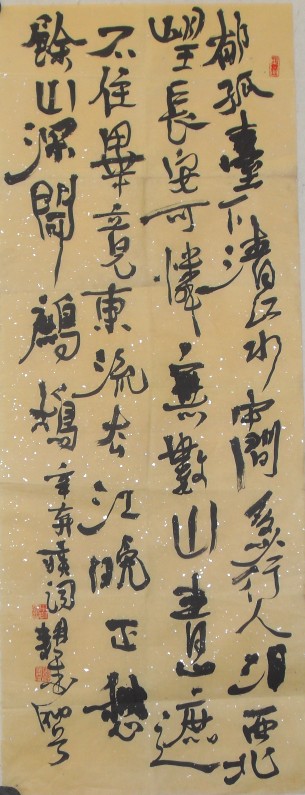 郁孤臺下清江水中間多少行人泪西北
望長安可憐無數山青山遮
不住畢竟東流去江晚正愁
餘山深聞鷓鴣
辛弃疾詞